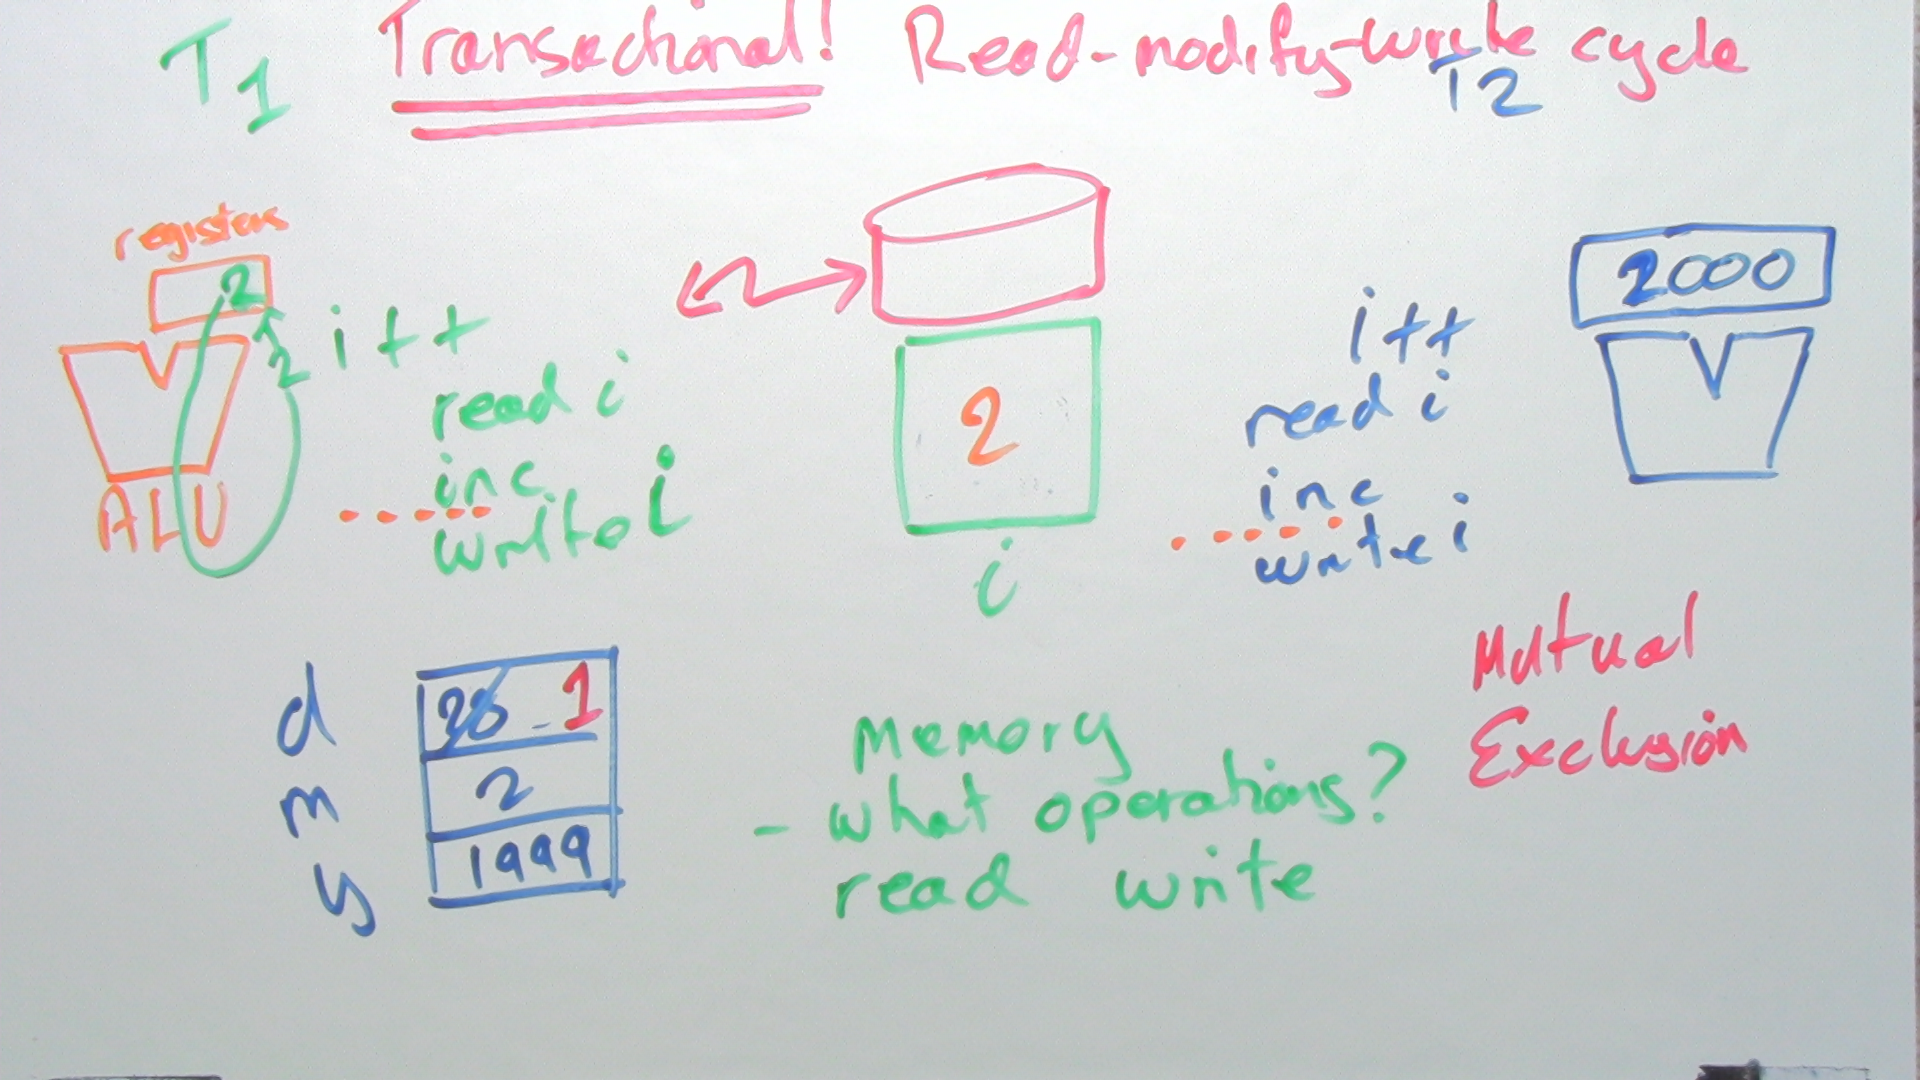 T1 Transactional! Read-modify-write cycle
T2
registers
2
2
i++
read i
inc
write i
ALU
2
i
i++
read i
inc
write i
2000
d 28 1
m 2
y 1999
Memory
- what operations?
read write
Mutual
Exclusion